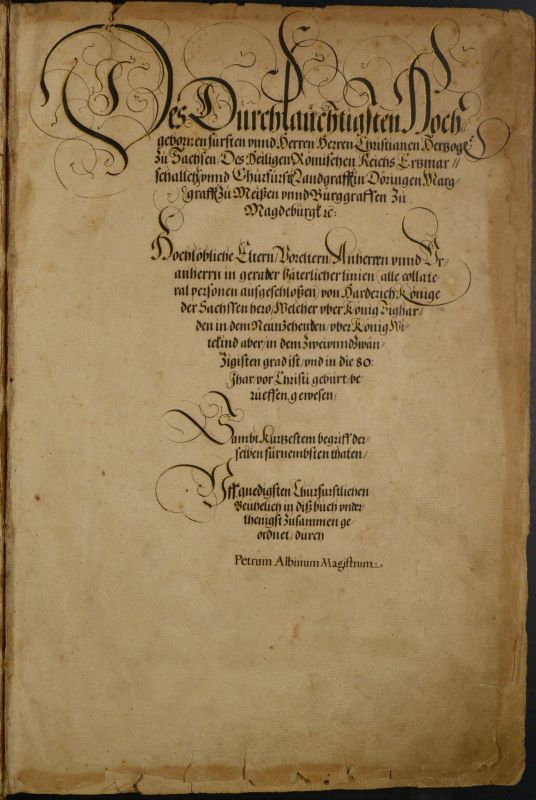 Des Durchlaüchtigsten Hoch
gebornen fürsten vnnd Herren Herren Christianen Hertzogē
zü Sachsen / Des Heiligen Römischen Reichs Ertzmar //
schalleṅ vnnd Chürfürstē Landgraffē in Döringen Marg-
graffē Zü Meißen vnnd Bürggraffen Zü
Magdebürgk ꝛc:
Hochlöbliche Eltern / Voreltern / Anherren vnnd Vr-
anherrn in gerader Väterlicher linien / alle collate-
ral personen ausgeschloßen / von Harderich Könige
der Sachssen hero / Welcher vber König Sighar-
den in dem Neunzehenden / vber König Wi-
tekind aber / in dem Zweivnndzwan-
Zigisten grad ist / vnd in die 80:
Jhar vor Christi gebürt / be
rüeffen gewesen /
Sambt Kürtzestem begriff der-
selben fürnembsten thaten /
Vff gnedigsten Chürfürstlichen
Beuhelich in diß büch vnder-
thenigst Züsammen ge
ordnet / dürch
Petrum Albinum Magistrum.